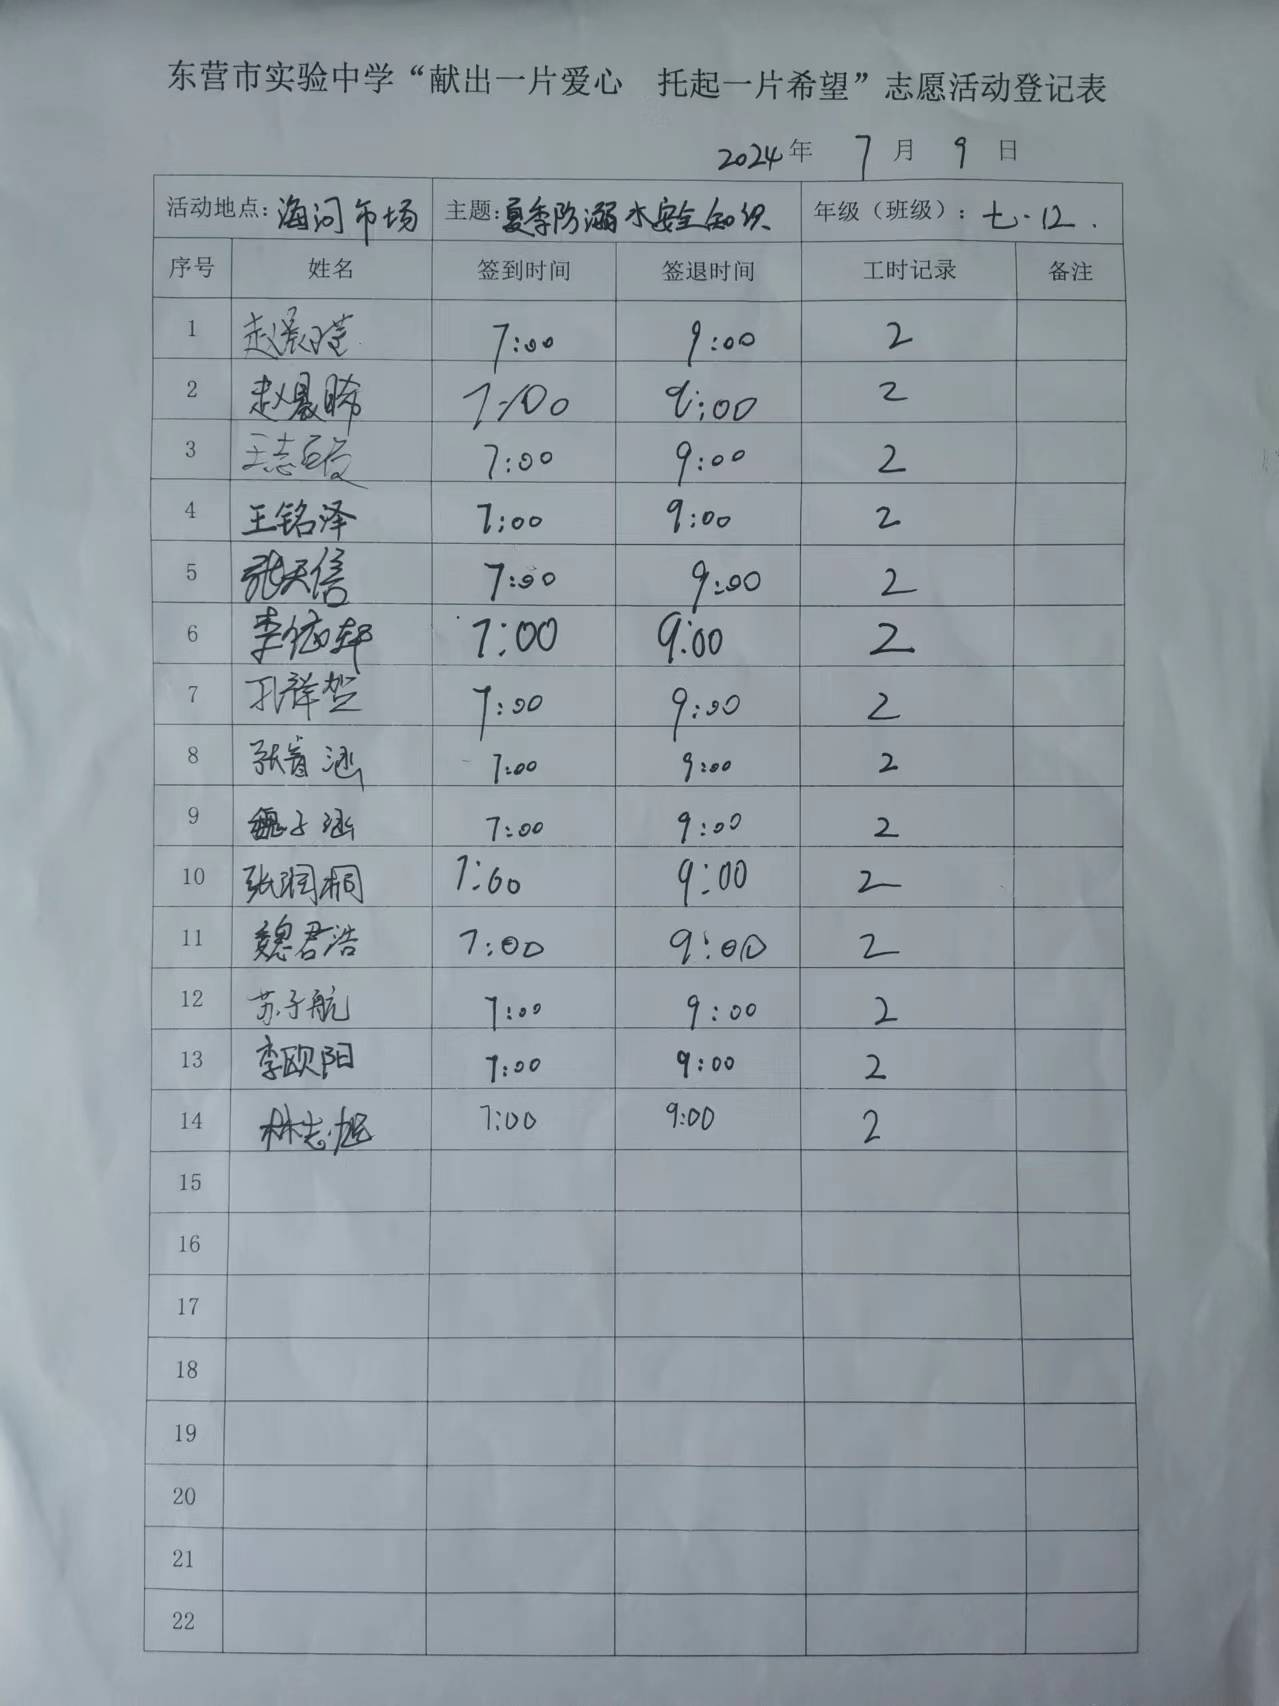 东营市实验中学“献出一片爱心 托起一片希望”志愿活动登记表
2024年 7月 9日
活动地点：海河市场 主题：夏季防溺水安全知识 年级（班级）：七·12.
序号 姓名 签到时间 签退时间 工时记录 备注
1 赵晨 7:00 9:00 2
2 赵晨晞 7:00 9:00 2
3 王志 7:00 9:00 2
4 王铭泽 7:00 9:00 2
5 张天信 7:00 9:00 2
6 李依轩 7:00 9:00 2
7 孔祥哲 7:00 9:00 2
8 张 涵 7:00 9:00 2
9 魏子涵 7:00 9:00 2
10 张润桐 7:00 9:00 2
11 魏君浩 7:00 9:00 2
12 苏子航 7:00 9:00 2
13 李欧阳 7:00 9:00 2
14 林志旭 7:00 9:00 2
15
16
17
18
19
20
21
22